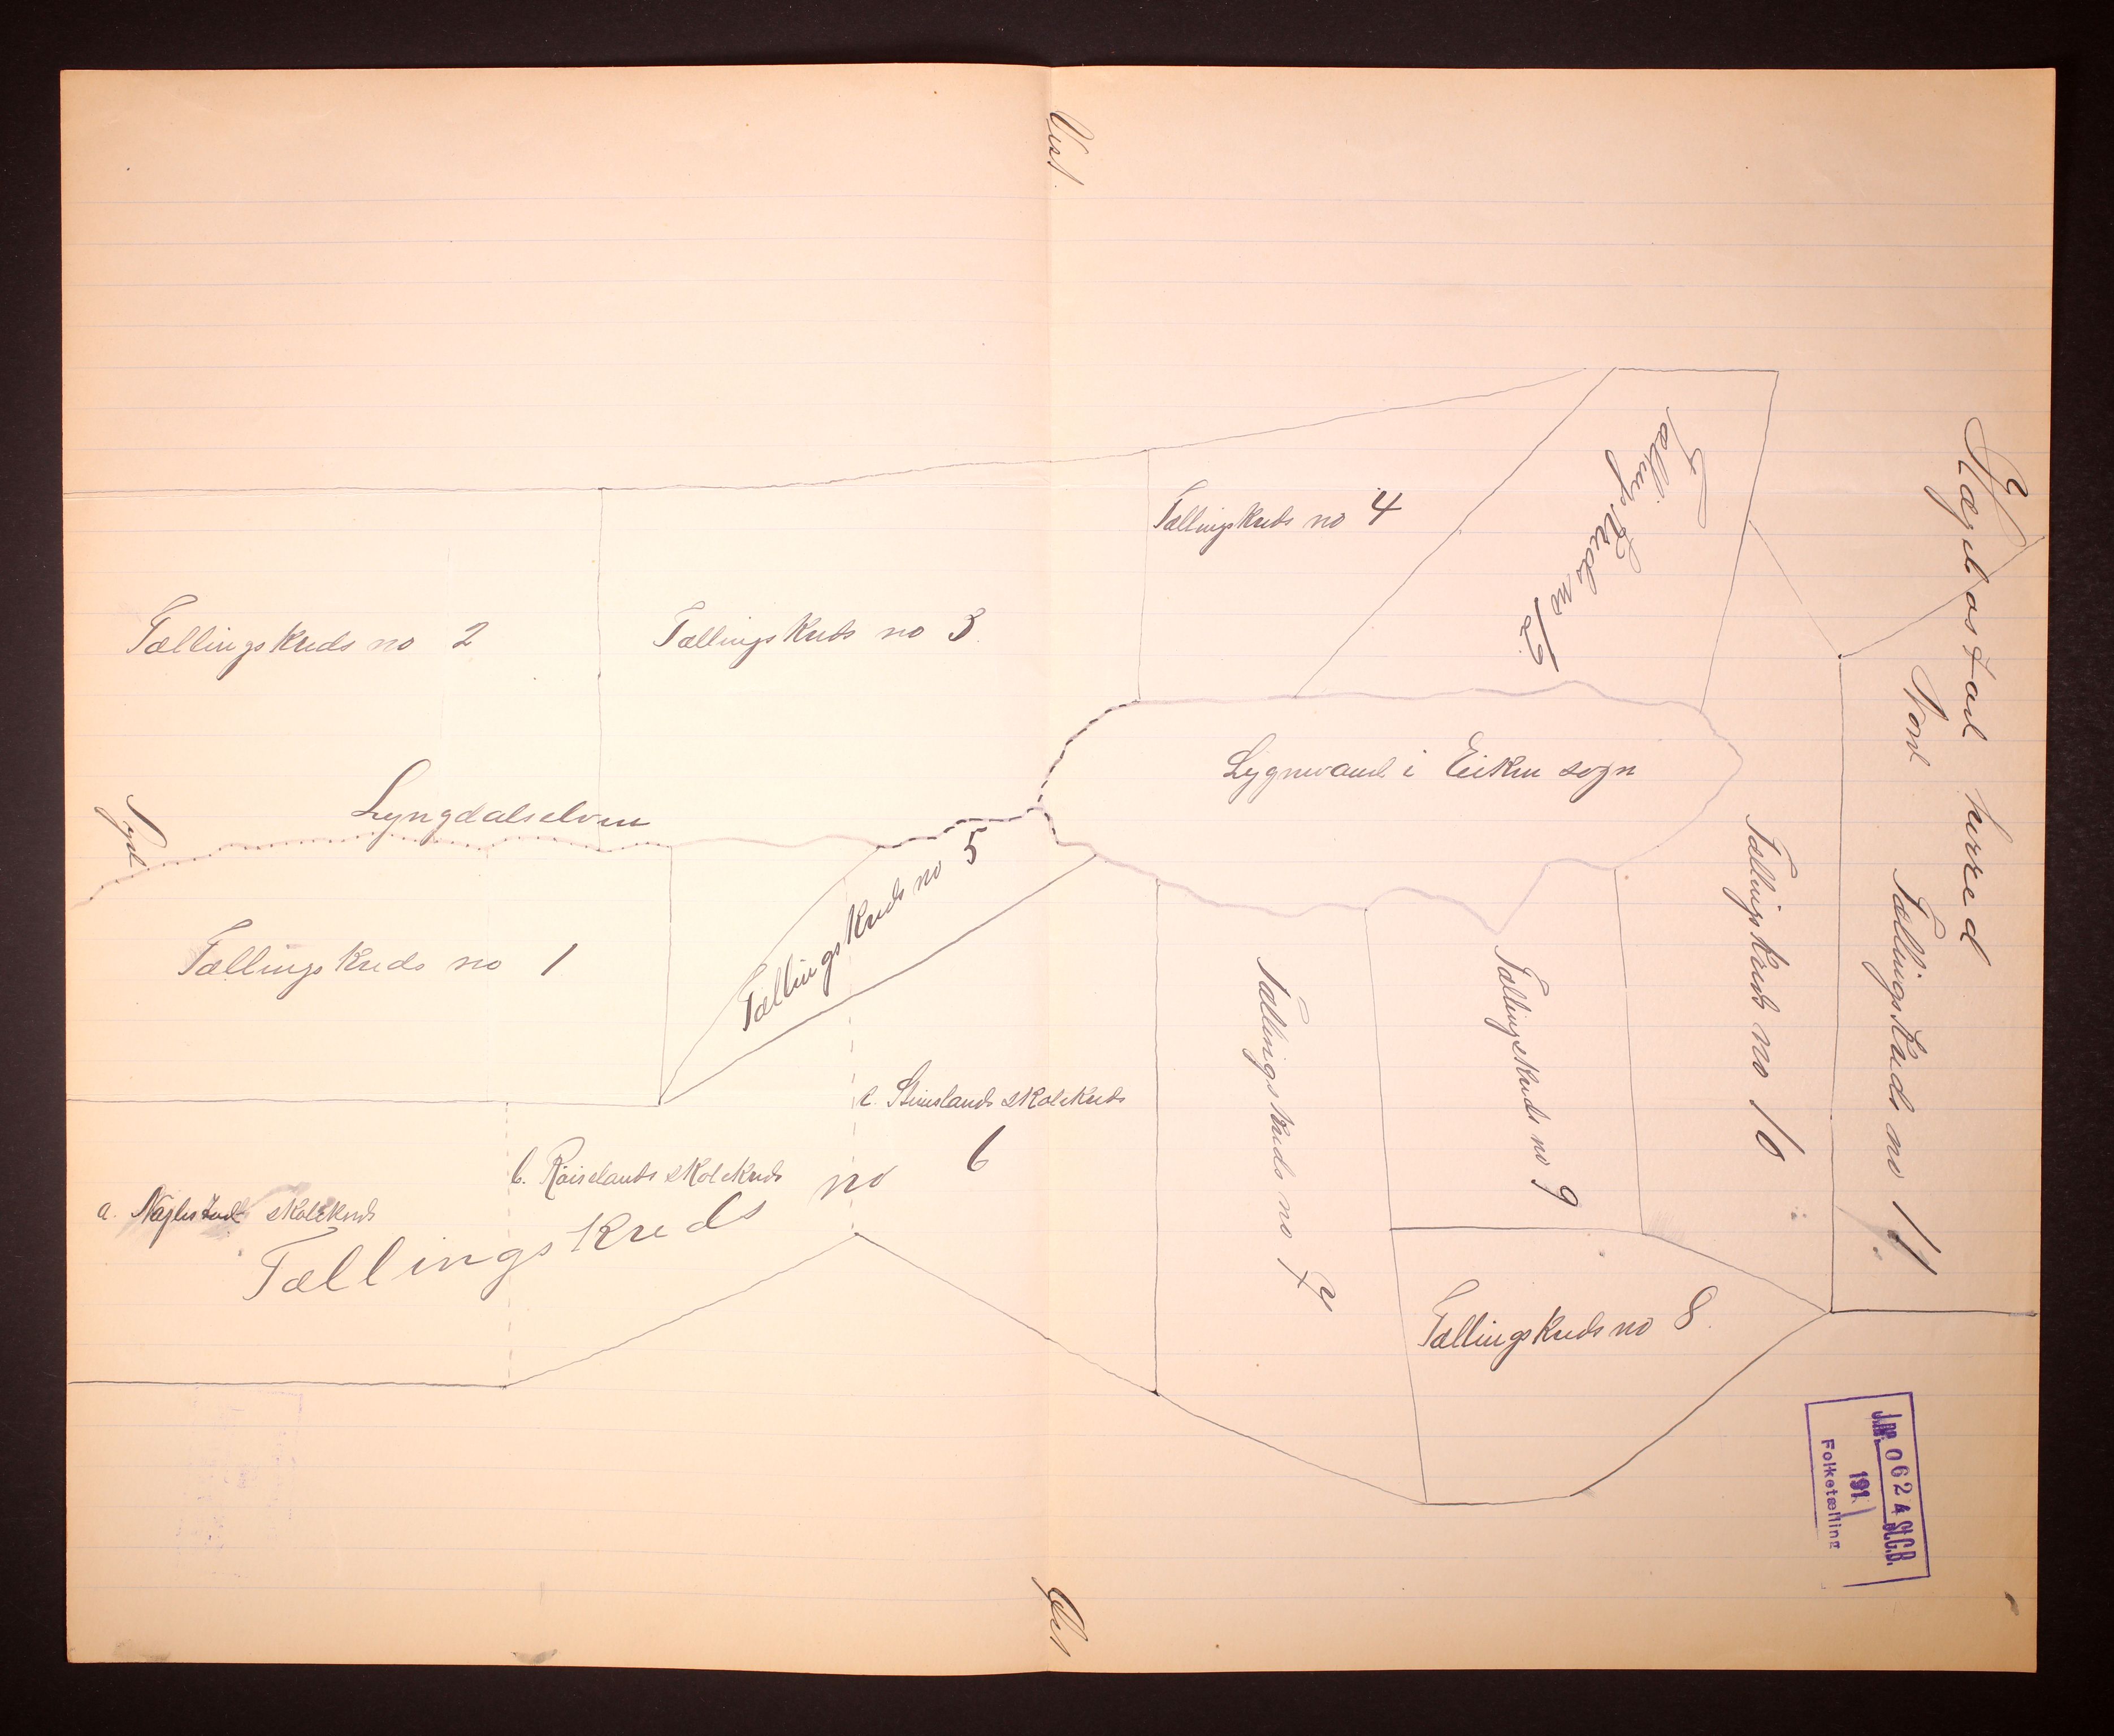 Vest.
Hægebostad herred
Nord
Syd
Øst
Tællingskreds no 2
Tællingskreds no 3.
Tællingskreds no 4
Tællingskreds no 12.
Lyngdalselven
Lygnevand i Eiken sogn
Tællingskreds no 1
Tællingskreds no 5
Tællingskreds no 6
a. skolekreds
b. Röiselands skolekreds
c. Skeislands skolekreds
Tællingskreds no 7
Tællingskreds no 8.
Tællingskreds no 9
Tællingskreds no 10
Tællingskreds no 11
J.nr. 0624 St.C.B.
191
Folketælling